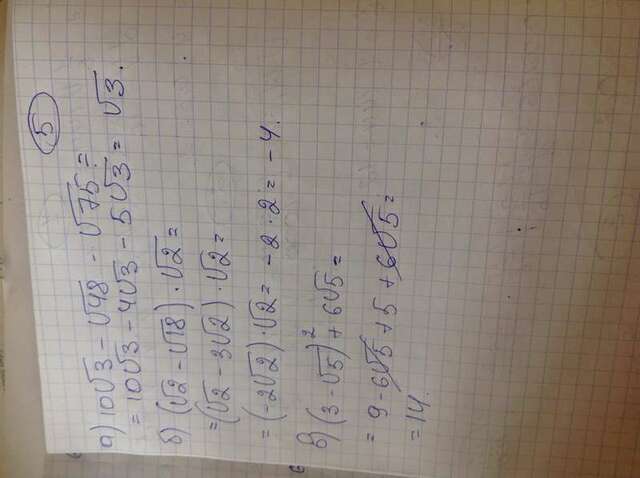 5
а) 10√3 - √48 - √75 =
= 10√3 - 4√3 - 5√3 = √3.
б) (√2 - √18) · √2 =
= (√2 - 3√2) · √2 =
= (-2√2) · √2 = -2 · 2 = -4.
в) (3 - √5)² + 6√5 =
= 9 - 6√5 + 5 + 6√5 =
= 14.